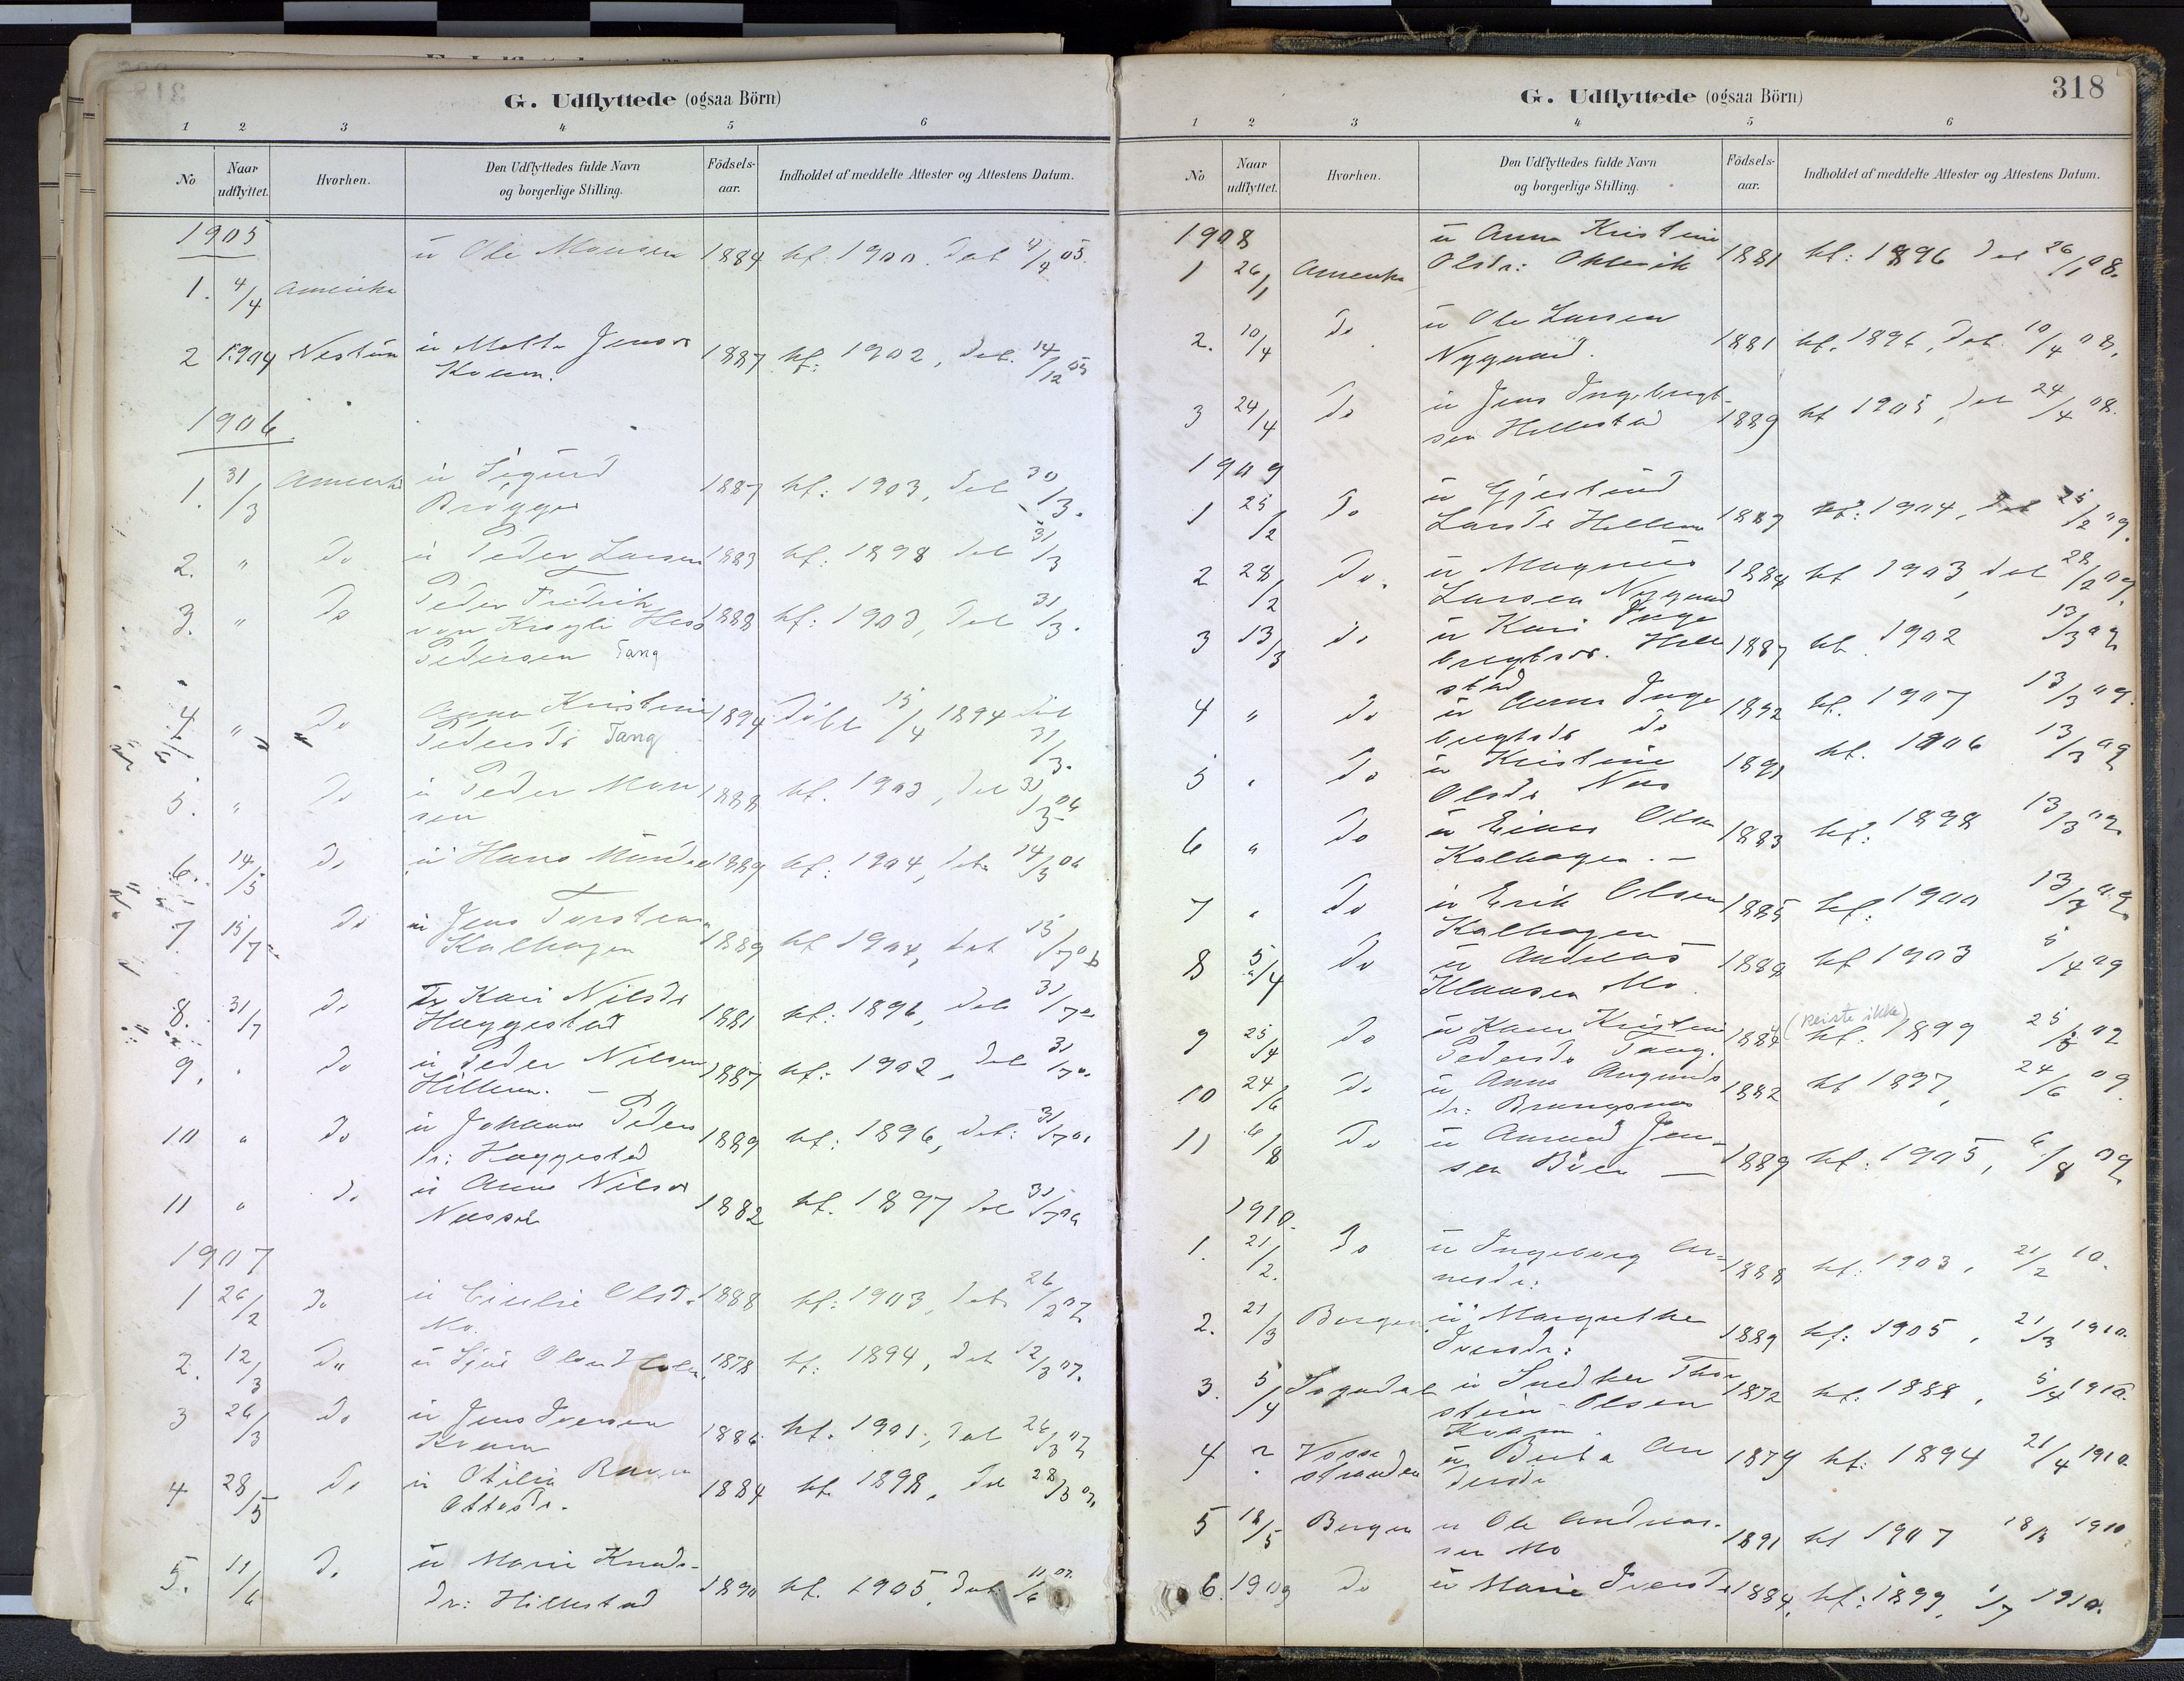 G. Udflyttede (ogsaa Börn)
1 2 3 4 5 6
No Naar udflyttet. Hvorhen. Den Udflyttedes fulde Navn og borgerlige Stilling. Födsels-aar. Indholdet af meddelte Attester og Attestens Datum.
1905
ü Ole Monsen 1884 kf: 1900. dat 4/4 05.
1. 4/4 Amerika
2 1904 ü Jensdr 1887 kf: 1902, dat. 14/12 05
1906
1. 31/3 Amerika ü Sigurd 1887 kf: 1903, dat 30/3.
Brügger
2. " Do ü Peder Larsen 1883 kf: 1898 dat 31/3
3. " Do Peder Fredrik 1888 kf: 1903, dat 31/3.
von Krogh Hess
Pedersen Tang
4 " Do Anna Kristine 1894 Döbt 15/4 1894 dat 31/3.
Pedersdr Tang
5. " Do ü Peder Mon 1888 kf. 1903, dat 31/3 06
sen
6. 14/5 Do ü Hans 1889 kf: 1904, dat 14/5 06
7. 15/7 Do ü Jens Torstens 1889 kf 1904, dat 15/7 06
Kalhagen
8. 31/7 Do Kari Nilsdr 1881 kf: 1896, dat 31/7
Haggestad
9. " Do ü Peder Nilsen 1887 kf: 1902, dat 31/7
Hillum. –
10 " Do ü Johanne Peders 1889 kf: 1896, dat: 31/7
dr: Haggestad
11 " Do ü Anna Nilsdr 1882 kf. 1897 dat 31/7
1907
1 26/2 Do ü Olsdr 1888 kf: 1903, dat 26/2 07
Mo
2. 12/3 Do ü Olsen 1878 kf: 1894, dat 12/3 07.
3 26/3 Do ü Jens Iversen 1886 kf. 1901, dat 26/3 07
Kvam
4 28/5 Do ü Otilie 1884 kf. 1898, dat 28/5 07
Ottesdr.
5. 11/6 Do ü Marie Knuds- 1890 kf. 1905, dat 11/6 07
dr: Hillestad
318
G. Udflyttede (ogsaa Börn)
1 2 3 4 5 6
No Naar udflyttet. Hvorhen. Den Udflyttedes fulde Navn og borgerlige Stilling. Födsels-aar. Indholdet af meddelte Attester og Attestens Datum.
1908
ü Anna Kristine
1 26/1 Amerika Olsdr: 1881 kf: 1896 dat 26/1 08.
2. 10/4 Do ü Ole Larsen 1881 kf. 1896, dat. 10/4 08.
Nygaard.
3 24/4 Do ü Jens Ingebrigt- 1889 kf 1905, dat 24/4 08.
sen Hillestad
1909
1 25/2 Do ü Gjertrud 1889 kf: 1904, dat 25/2 09.
Larsdr Hillum
2 28/2 Do. ü Magnus 1884 kf 1903, dat 28/2 09.
Larsen Nygaard
3 13/3 Do ü Kari Inge 1887 kf. 1902 13/3 09
brigtsdr. Hille
stad
4 " Do ü Anna Inge 1892 kf. 1907 13/3 09.
brigtsdr Do
5 " Do ü Kristine 1891 kf. 1906 13/3 09
Olsdr Nes
6 " Do ü Einar Olsen 1883 kf: 1898 13/3 09
Kalhagen. –
7 " Do ü Erik Olsen 1885 kf: 1900 13/3 09
Kalhagen
8 5/4 Do ü Andreas 1888 kf 1903 5/4 09
Klausen Mo.
(Reiste ikke)
9 25/4 Do ü Kristine 1884 kf: 1899 25/ 09
Pedersdr Tang.
10 24/6 Do ü Anna 1882 kf 1897, 24/6 09.
dr:
11 6/8 Do ü Jen- 1889 kf: 1905, 6/8 09
sen Böen –
1910.
1. 21/2. Do ü Ingeborg Ar- 1888 kf: 1903, 21/2 10.
nesdr:
2. 21/3 Bergen ü Margrethe 1889 kf: 1905, 21/3 1910.
Iversdr:
3. 5/4 Sogndal ü Snedker Thor 1872 kf: 1888, 5/4 1910.
stein Olsen
Kvam.
4 ? Vosse ü Berta An 1879 kf: 1894 21/4 1910.
stranden dersdr
5 18/5 Bergen ü Ole Andreas- 1891 kf 1907 18/5 1910
sen Mo
6. 1909 Do ü Marie Iversdr 1884. kf: 1899, 1/7 1910.